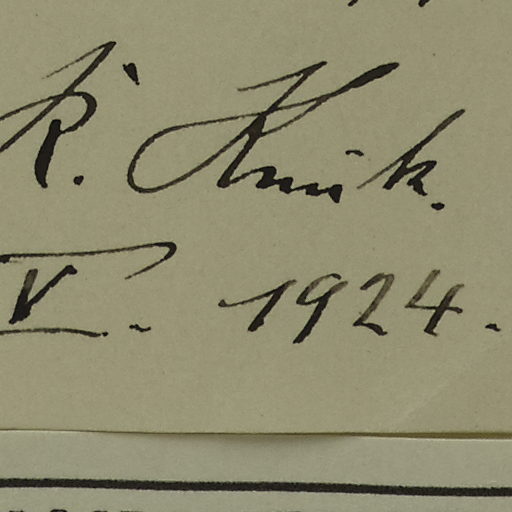 R. Kmik.
V. 1924.